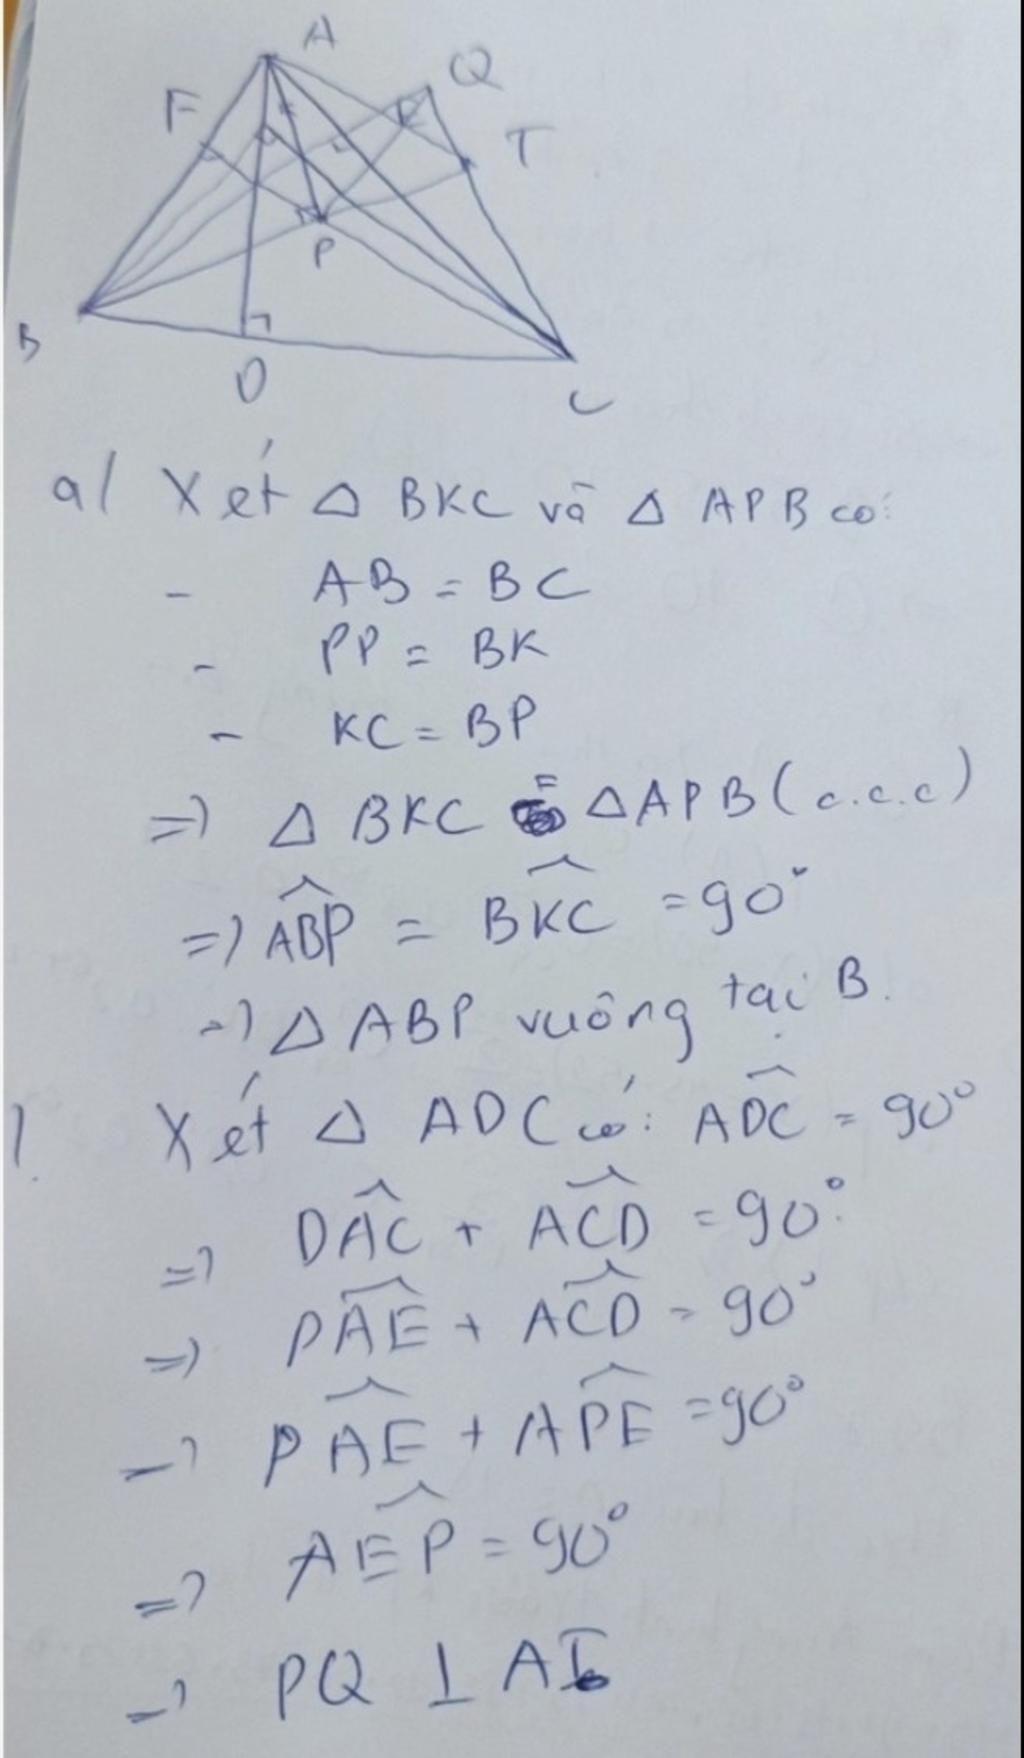 A
Q
F
E
T
P
B
D
C
a/ Xét △ BKC và △ APB có:
- AB = BC
- PP = BK
- KC = BP
=> △ BKC = △ APB (c.c.c)
=> ABP = BKC = 90°
=> △ ABP vuông tại B.
Xét △ ADC có: ADC = 90°
=> DAC + ACD = 90°
=> PAE + ACD = 90°
=> PAE + APE = 90°
=> AEP = 90°
=> PQ ⊥ AI